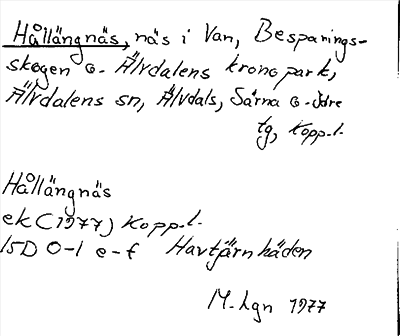 Hållängnäs, näs i Van, Besparings-
skogen o. Älvdalens kronopark,
Älvdalens sn, Älvdals, Särna o. Idre
tg, Kopp.l.
Hållängnäs
ek (1977) Kopp.l.
15D 0-1 e-f Havtjärnhäden
M. Lgn 1977